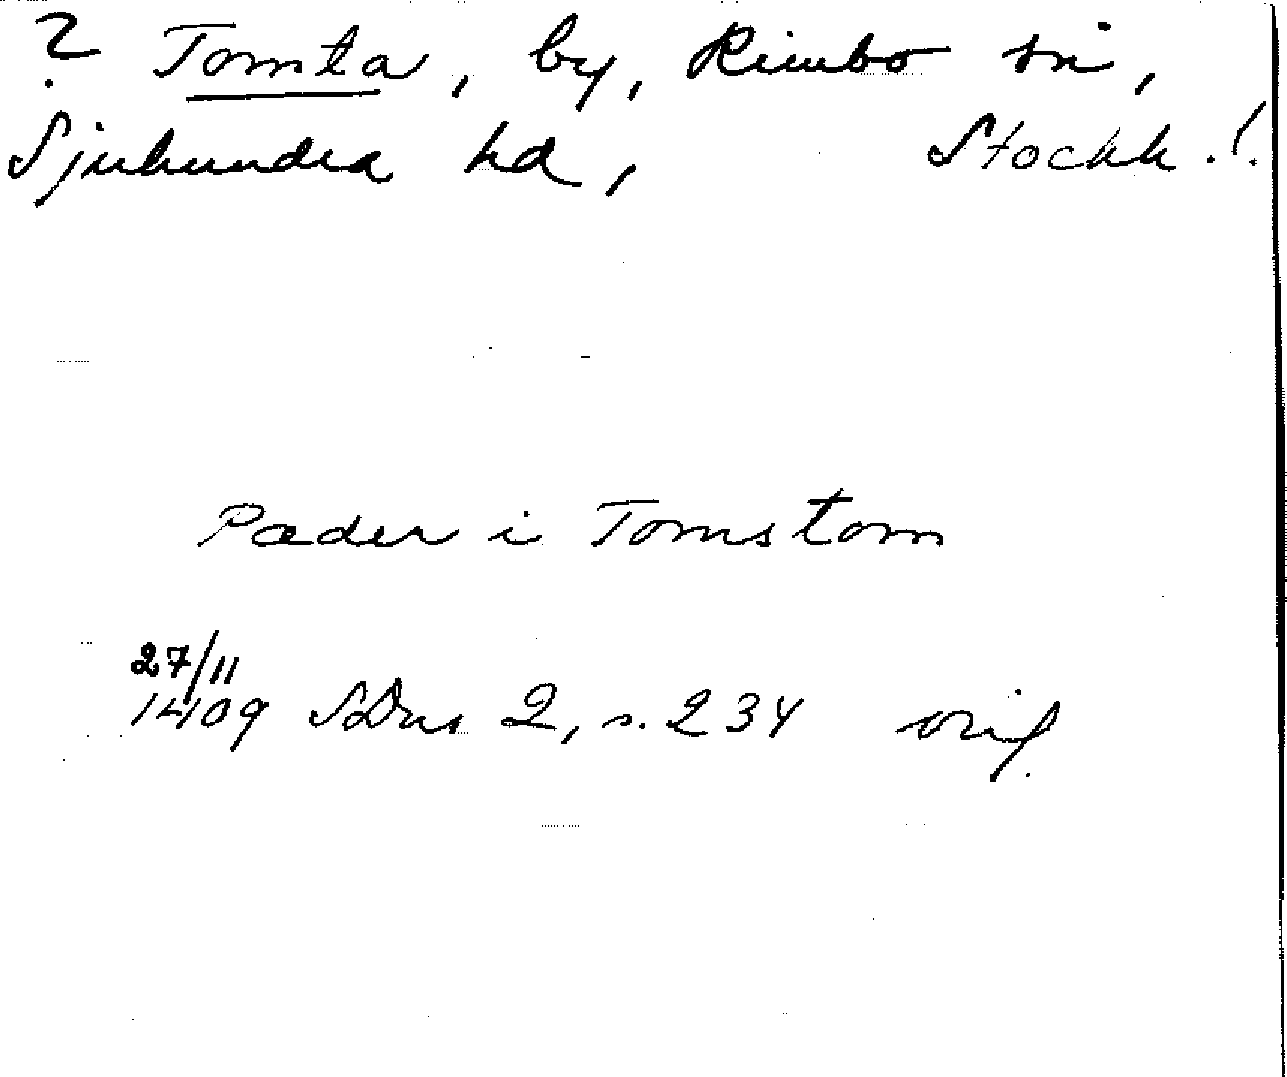 ? Tomta, by, Rimbo sn,
Sjuhundra hd, Stockh. l.
Pæder i Tomstom
27/11
1409 SDns 2, s. 234 orig.